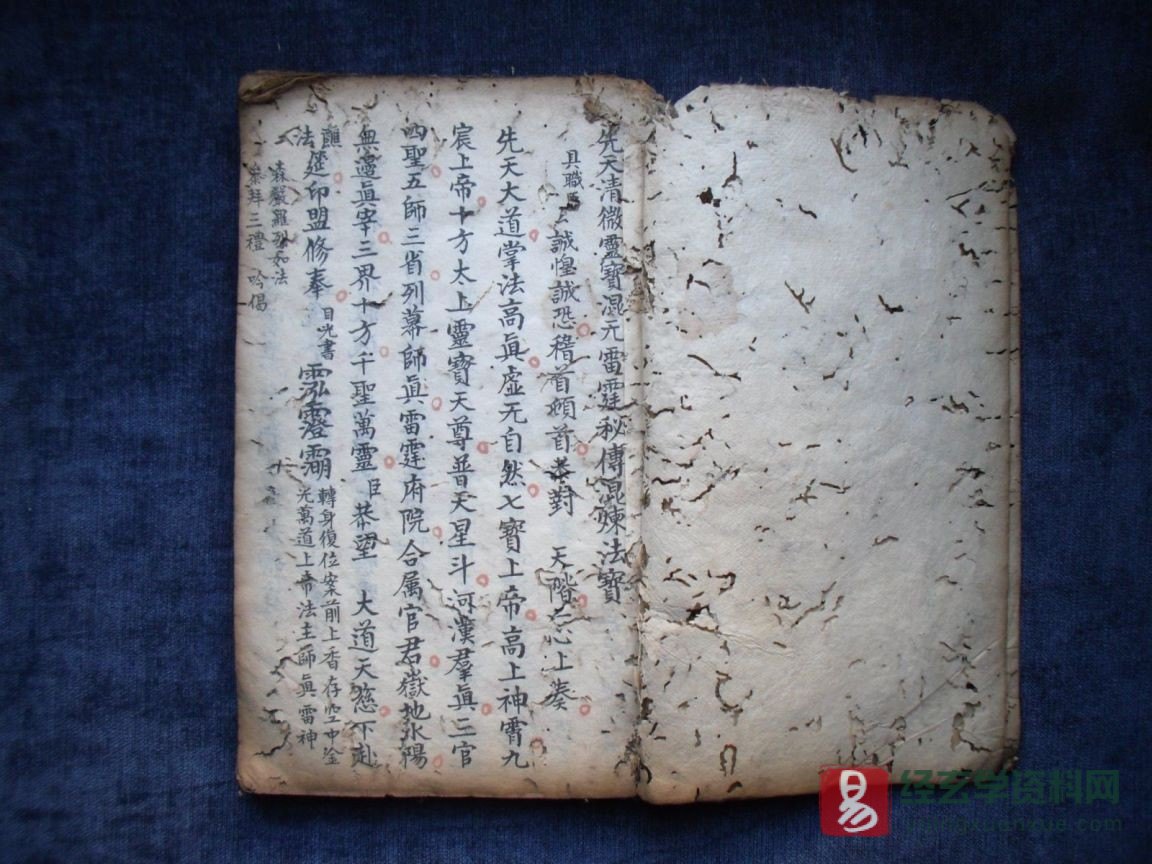 先天清微靈寶混元雷霆秘傳混煉法寶
具職臣厶誠惶誠恐稽首頓首恭對 天階 心上奏
先天大道掌法高眞虛无自然七寶上帝高上神霄九
宸上帝十方太上靈寶天尊普天星斗河漢羣眞三官
四聖五師三省列幕師眞雷霆府院合属官君嶽地水陽
無邊眞宰三界十方千聖萬靈臣恭望 大道天慈下赴
醮
法筵印盟修奉 目光書
轉身復位案前上香存空中金
光萬道上帝法主師眞雷神
森嚴羅列如法
三禮 吟偈
易
经玄学资料网
jingxuanxue.com